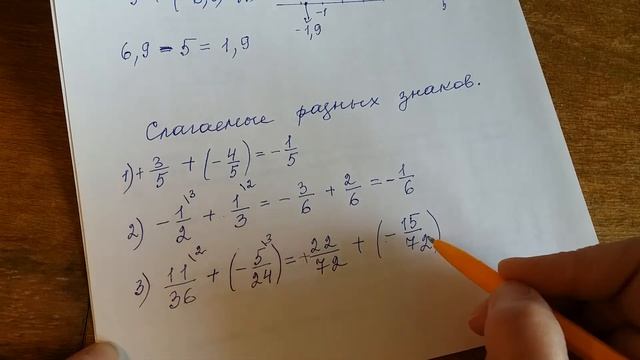 -1
-1,9
6,9 - 5 = 1,9
Слагаемые разных знаков.
1) + 3/5 + (- 4/5) = - 1/5
2) - 1\3/2 + 1\2/3 = - 3/6 + 2/6 = - 1/6
3) 11\2/36 + (- 5\3/24) = + 22/72 + (- 15/72)